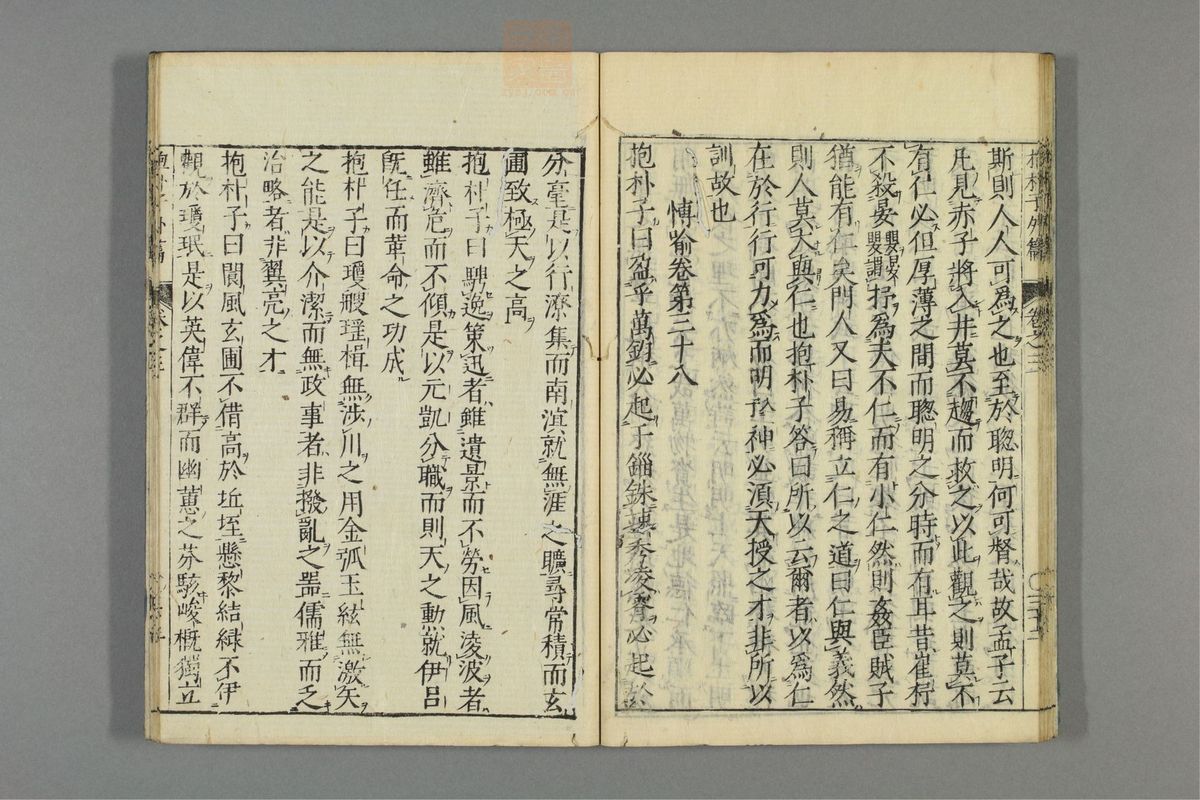 斯則人人可爲之也至於聦明何可督哉故孟子云
凡見赤子將入井莫不趨而救之以此觀之則莫不
有仁心但厚薄之間而聦明之分時而有耳昔崔杼
不殺晏嬰晏嬰謂杼爲大不仁而有小仁然則姦臣賊子
猶能有仁矣門人又曰易稱立仁之道曰仁與義然
則人莫大與仁也抱朴子答曰所以云爾者以爲仁
在於行行可力爲而明於神必須天授之才非所以
訓故也
愽喻卷第三十八
抱朴子曰盈乎萬鈞必起于錙銖竦秀凌霄必起於
分毫是以行潦集而南溟就無涯之曠尋常積而玄
圃致極天之高
抱朴子曰騁逸策迅者雖遺景而不勞因風凌波者
雖濟危而不傾是以元凱分職而則天之勲就伊呂
旣任而革命之功成
抱朴子曰瓊艘瑶楫無涉川之用金弧玉絃無激矢
之能是以介潔而無政事者非撥亂之器儒雅而乏
治略者非翼亮之才
抱朴子曰閬風玄圃不借高於丘垤懸黎結緑不伊
觀於瓊珉是以英偉不群而幽蕙之芬駭峻槪獨立